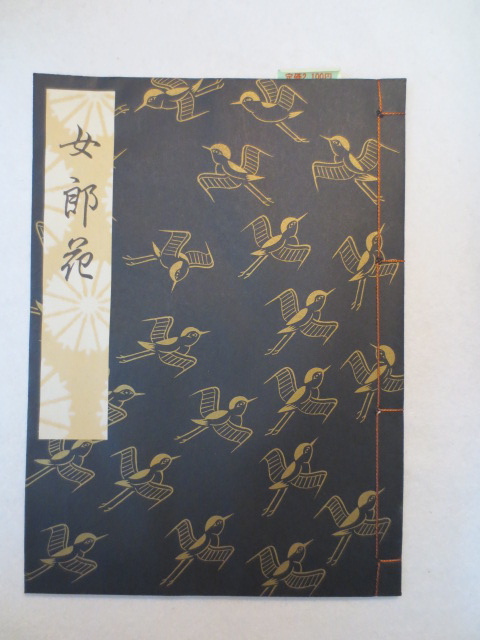 定価2,100円
女郎花